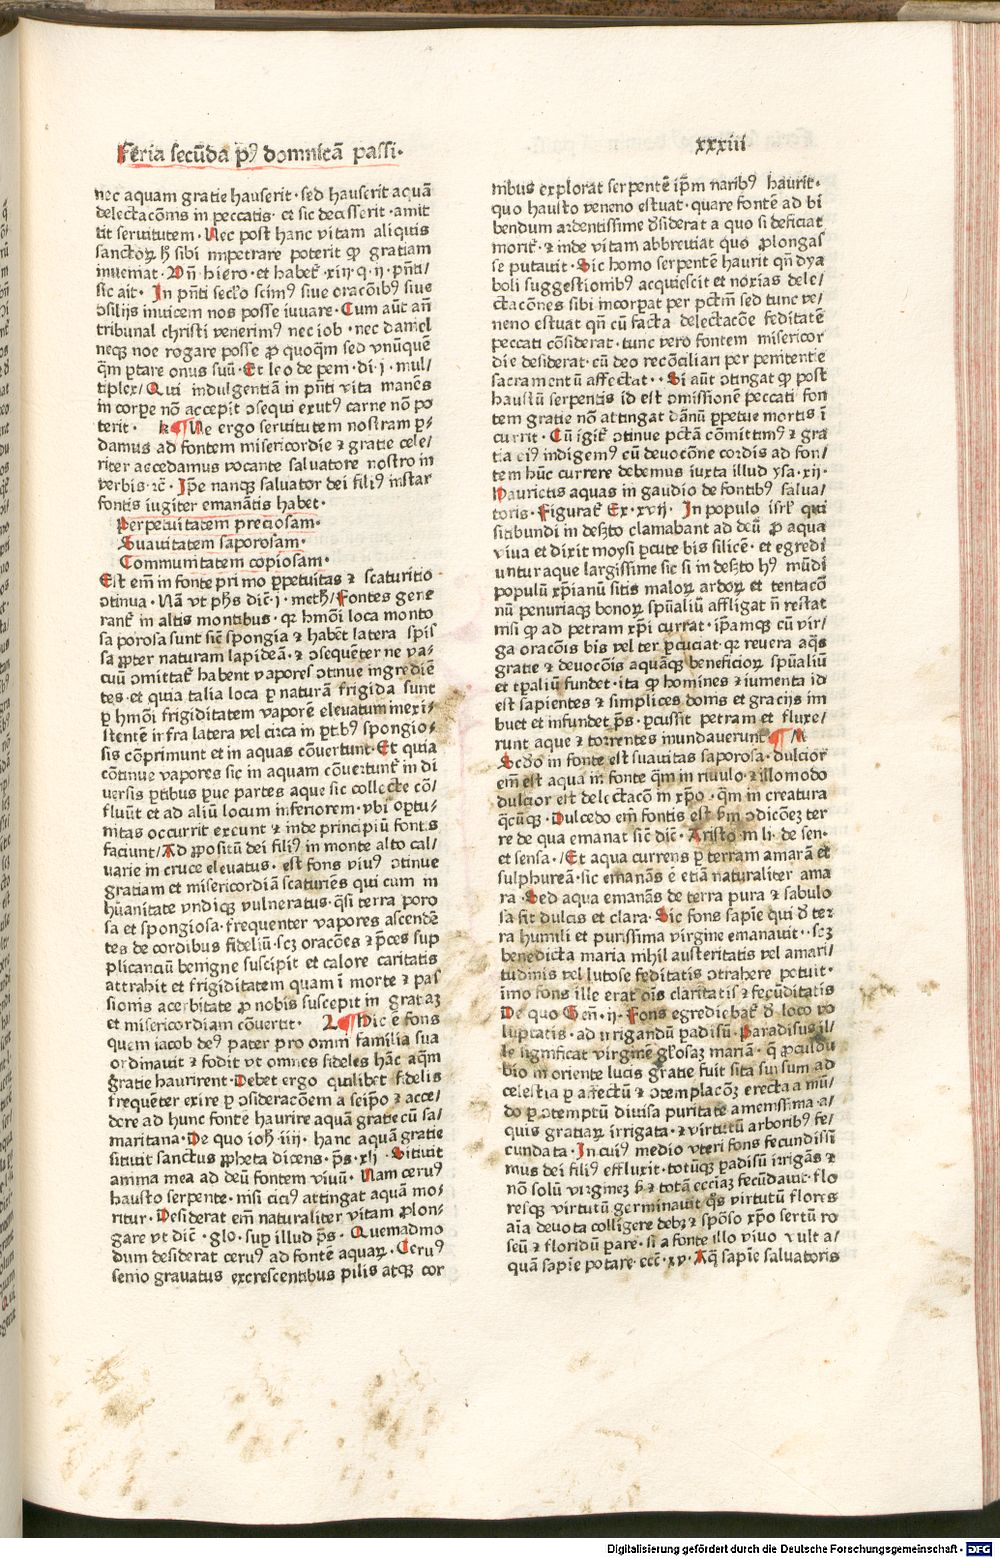 Feria secūda pꝰ domnicā passi·
xxxiii
nec aquam gratie hauserit· sed hauserit aquā
delectacōnis in peccatis· et sic decesserit· amit
tit seruitutem· Nec post hanc vitam aliquis
sanctoꝝ sibi impetrare poterit ꝙ gratiam
inueniat· Vn̄ hiero· et habet̄ ·xiij q· ij· pn̄ti/
sic ait· In pn̄ti secl̄o scimꝰ siue oracōibꝰ siue
ↄsilijs inuicem nos posse iuuare· Cum aūt an̄
tribunal christi venerimꝰ nec iob· nec daniel
neqꝫ noe rogare posse ꝓ quoq̄m sed vnūquē
q̄m ꝑtare onus suū· Et leo de pem· di· j· mul/
tiplex/ Qui indulgentiā in pn̄ti vita manēs
in corpe nō accepit ↄsequi exutꝰ carne nō po
terit· k Ne ergo seruitutem nostram ꝑ-
damus ad fontem misericordie ⁊ gratie cele/
riter accedamus vocante saluatore nostro in
verbis ·⁊c̄· Ipe nanqꝫ saluator dei filiꝰ instar
fontis iugiter emanātis habet·
Perpetuitatem preciosam·
Suauitatem saporosam·
Communitatem copiosam·
Est em̄ in fonte primo ꝑpetuitas ⁊ scaturitio
ↄtinua· Nā vt ph̄s dic̄· j· meth̄/ Fontes gene
rant̄ in altis montibus· qꝛ hmōi loca monto
sa porosa sunt sic̄ spongia ⁊ habēt latera spis
sa ꝓpter naturam lapideā· ⁊ ↄsequēter ne va/
cuū ↄmittat̄ habent vapores ↄtinue ingrediē
tes· et quia talia loca ꝑ naturā frigida sunt
ꝑ hmōi frigiditatem vaporē elevatum inexi/
stentē infra latera vel circa in ꝑtibꝰ spongio/
sis cōprimunt et in aquas cōuertunt· Et quia
cōtinue vapores sic in aquam cōuertunt̄ in di
uersis ꝑtibus ꝑue partes aque sic collecte cō/
fluūt et ad aliū locum inferiorem· vbi oꝑtu/
nitas occurrit exeunt ⁊ inde principiū fontis
faciunt/ Ad ꝓpositū dei filiꝰ in monte alto cal/
uarie in cruce elevatus· est fons viuꝰ ↄtinue
gratiam et misericordiā scaturiēs qui cum in
hūanitate vndiqꝫ vulneratus· q̄si terra poro
sa et spongiosa· frequenter vapores ascendē
tes de cordibus fideliū· scꝫ oracōes ⁊ p̄ces sup
plicanciū benigne suscipit et calore caritatis
attrahit et frigiditatem quam ī morte ⁊ pas
sionis acerbitate ꝓ nobis suscepit in gratiaꝫ
et misericordiam cōuertit· L Hic ē fons
quem iacob deꝰ pater pro omni familia sua
ordinauit ⁊ fodit vt omnes fideles hāc aq̄m
gratie haurirent· Debet ergo quilibet fidelis
frequēter exire ꝑ ↄsideracōem a seip̄o ⁊ acce/
dere ad hunc fontē haurire aquā gratie cū sa/
maritana· De quo ioh̄· iiij· hanc aquā gratie
sitiuit sanctus ꝓpheta dicens· p̄s· xlj· Sitiuit
anima mea ad deū fontem viuū· Nam ceruꝰ
hausto serpente· nisi ciciꝰ attingat aquā mo/
ritur· Desiderat em̄ naturaliter vitam ꝓlon/
gare vt dic̄· glo· suꝑ illud p̄s· Quemadmo
dum desiderat ceruꝰ ad fontē aquaꝝ· Ceruꝰ
senio gravatus excrescentibus pilis atqꝫ cor
nibus explorat serpentē ip̄m naribꝰ haurit·
quo hausto veneno estuat· quare fontē ad bi
bendum ardentissime d̄siderat a quo si deficiat
morit̄· ⁊ inde vitam abbreuiat quo ꝓlongas
se putauit· Sic homo serpentē haurit qn̄ dya
boli suggestionibꝰ acquiescit et noxias dele/
ctacōnes sibi incorꝑat per pctm̄ sed tunc ve/
neno estuat qn̄ cū facta delectacōe feditatē
peccati cōsiderat· tunc vero fontem misericor
die desiderat· cū deo recōciliari per penitentie
sacramentū affectat·· Si aūt ↄtingat ꝙ post
haustū serpentis id est ↄmissionē peccati fon
tem gratie nō attingat dānū ꝑpetue mortis ī
currit· Cū igit̄ ↄtinue pctā cōmittimꝰ ⁊ gra
tia eiꝰ indigemꝰ cū devocōne cordis ad fon/
tem hūc currere debemus iuxta illud ysa· xij·
Haurietis aquas in gaudio de fontibꝰ salua/
toris· Figurat̄ Ex· xvij· In populo isrl̄ qui
sitibundi in des̄to clamabant ad deū ꝓ aqua
viua et dixit moysi ꝑcute bis silicē· et egredi
untur aque largissime sic si in des̄to hꝰ mūdi
populū xp̄ianū sitis maloꝝ ardoꝝ et tentacō
nū penuriaqꝫ bonoꝝ spūaliū affligat n̄ restat
nisi ꝙ ad petram xp̄i currat· ip̄amqꝫ cū vir/
ga oracōis bis vel ter ꝑcuciat· qꝛ reuera aq̄s
gratie ⁊ devocōis aquāqꝫ beneficioꝝ spūaliū
et tꝑaliū fundet· ita ꝙ homines ⁊ iumenta id
est sapientes ⁊ simplices donis et gracijs im
buet et infundet p̄s· ꝑcussit petram et fluxe/
runt aque ⁊ torrentes inundauerunt̄ M
Scd̄o in fonte est suauitas saporosa· dulcior
em̄ est aqua in fonte q̄m in riuulo· ⁊ illo modo
dulcior est delectacō in xp̄o· q̄m in creatura
q̄cūqꝫ· Dulcedo em̄ fontis est sm̄ ↄdicōeꝫ ter
re de qua emanat sic̄ dic̄· Aristo· in li· de sen·
et sensa·/ Et aqua currens ꝑ terram amarā et
sulphureā· sic emanās ē etiā naturaliter ama
ra· Sed aqua emanās de terra pura ⁊ sabulo
sa fit dulcis et clara· Sic fons sapīe qui d̄ ter
ra humili et purissima virgine emanauit·· scꝫ
benedicta maria nihil austeritatis vel amari/
tudinis vel lutose feditatis ↄtrahere potuit·
īmo fons ille erat oīs claritatis ⁊ fecūditatis
De quo Gen̄· ij· Fons egrediebat̄ d̄ loco vo
luptatis· ad irrigandū padisū· Paradisus il/
le significat virginē gl̄osaꝫ mariā· q̄ ꝓculdu
bio in oriente lucis gratie fuit sita sursum ad
celestia ꝑ affectū ⁊ ↄtemplacōꝫ erecta a mū/
do ꝑ ↄtemptū diuisa puritate amenissima a/
quis gratiaꝝ irrigata· ⁊ virtutū arboribꝰ fe/
cundata· In cuiꝰ medio vteri fons fecundissi
mus dei filiꝰ effluxit· totūqꝫ padisū irrigās ⁊
nō solū virgineꝫ sꝫ ⁊ totā eccīaꝫ fecūdauit· flo
resqꝫ virtutū germinauit q̄s virtutū flores
aīa deuota colligere debꝫ ⁊ spōso xp̄o sertū ro
seū ⁊ floridū ꝑare· si a fonte illo viuo vult a/
quā sapīe potare· ecc̄· xv· Aq̄ sapīe saluatoris
Digitalisierung gefördert durch die Deutsche Forschungsgemeinschaft - DFG